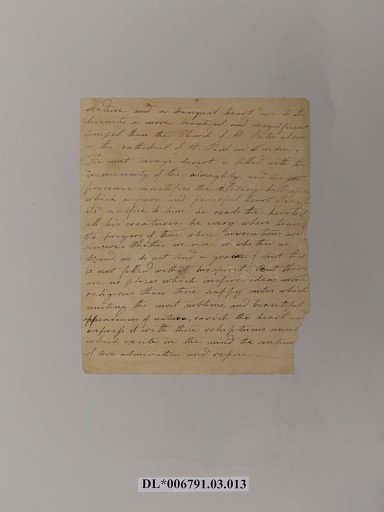 Nature and a tranquil heart are to the
divinity a more beautiful and magnificent
tempel than the Church of St. Peter at
or the cathedral of St. Paul in London
The most savage desert is filled with the
immensity of the almighty and his
presence sanctifies the solitary
which a pure and peaceful heart
to him. he reads the hearts of
all his creatures. he every where hears
the prayers of those whose invocations are
sincere. Whether we rise or whether we
descend we do not find a grain of dust that
is not filled with his spirit. But there
are no places which inspire ideas more
religious than those happy sites which
uniting the most sublime and beautiful
appearances of nature, ravish the heart and
impress it with those
which excite in the mind the
of love admiration and repose
DL*006791.03.013